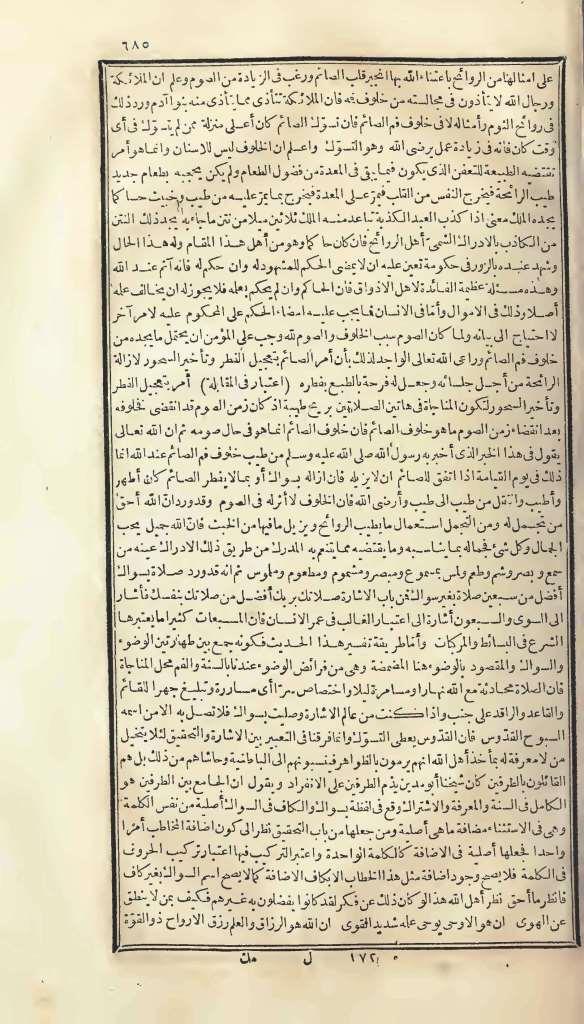 ٦٨٥
على امثالها من الروائح باعتناء الله بها انجبر قلب الصائم ورغب فى الزيادة من الصوم وعلم ان الملائكة
ورجال الله لا يتأذون فى مجالسته من خلوف فمه فان الملائكة تتأذى مما يتأذى منه بنو آدم ورد ذلك
فى روائح الثوم وأمثاله لا فى خلوف فم الصائم فان تسوّك الصائم كان أعلى منزلة ممن لم يتسوّك فى أى
وقت كان فانه فى زيادة عمل يرضى الله وهو التسوّك واعلم ان الخلوف ليس للاسنان وانما هو أمر
تقتضيه الطبيعة للتعفن الذى يكون فيما يبقى فى المعدة من فضول الطعام ولم يكن يحجبه بطعام جديد
طيب الرائحة فيخرج النفس من القلب فيمرّ على المعدة فيخرج بما يمرّ عليه من طيب وخبيث حسا كما
يجده الملك معنى اذا كذب العبد الكذبة تباعد منه الملك ثلاثين ميلا من نتن ما جاء به يجد ذلك النتن
من الكاذب بالادراك الشمىّ أهل الروائح فان كان حاكما وهو من أهل هذا المقام وله هذا الحال
وشهد عنده بالزور فى حكومة تعين عليه ان لا يمضى الحكم للمشهود له وان حكم له فانه آثم عند الله
وهذه مسئلة عظيمة الفائدة لاهل الاذواق فان الحاكم وان لم يحكم بعلمه فلا يجوز له ان يخالف علمه
أصلا وذلك فى الاموال وأما فى الانسان فما يجب عليه امضاء الحكم على المحكوم عليه لامر آخر
لا احتياج الى بيانه ولما كان الصوم سبب الخلوف والصوم لله وجب على المؤمن ان يحتمل ما يجده من
خلوف فم الصائم وراعى الله تعالى الواجد لذلك بأن أمر الصائم بتعجيل الفطر وتأخير السحور لازالة
الرائحة من أجل جلسائه وجعل له فرحة بالطبع بفطره (اعتبار فى المقابلة) أمر بتعجيل الفطر
وتأخير السحور لتكون المناجاة فى هاتين الصلاتين بريح طيبة اذ كان زمن الصوم قد انقضى فخلوفه
بعد انقضاء زمن الصوم ما هو خلوف الصائم فان خلوف الصائم انما هو فى حال صومه ثم ان الله تعالى
يقول فى هذا الخبر الذى أخبر به رسول الله صلى الله عليه وسلم من طيب خلوف فم الصائم عند الله انما
ذلك فى يوم القيامة اذا اتفق للصائم ان لا يزيله فان ازاله بسواك أو بما لا يفطر الصائم كان أطهر
وأطيب وانتقل من طيب الى طيب وأرضى الله فان الخلوف لا أثر له فى الصوم وقد ورد ان الله أحق
من تتجمل له ومن التجمل استعمال ما يطيب الروائح ويزيل ما فيها من الخبث فان الله جميل يحب
الجمال وكل شىء فجماله بما يناسبه وما يقتضيه مما يتنعم به المدرك من طريق ذلك الادراك عينه من
سمع وبصر وشم وطعم ولمس بمسموع ومبصر ومشموم ومطعوم وملموس ثم انه قد ورد صلاة بسواك
أفضل من سبعين صلاة بغير سواك فمن باب الاشارة صلاتك بربك أفضل من صلاتك بنفسك فأشار
الى السوى والسبعون أشارة الى اعتبار الغالب فى عمر الانسان فان المسبعات كثيرا ما يعتبرها
الشرع فى البسائط والمركبات وأما طريقة تفسير هذا الحديث فكونه جمع بين طهارتين الوضوء
والسواك والمقصود بالوضوء هنا المضمضة وهى من فرائض الوضوء عندنا بالسنة والفم محل المناجاة
فان الصلاة محادثة مع الله نهارا ومسامرة ليلا واختصاص سرّ أى مساررة وتبليغ جهرا للقائم
والقاعد والراقد على جنب واذا كنت من عالم الاشارة وصليت بسواك فلا تصل به الا من اسمه
السبوح القدّوس فان القدّوس يعطى التسوّك وانما فرقنا فى التعبير بين الاشارة والتحقيق لئلا يتخيل
من لا معرفة له بمأخذ أهل الله انهم يرمون بالظواهر فينسبونهم الى الباطنية وحاشاهم من ذلك بل هم
القائلون بالطرفين كان شيخنا أبو مدين يذم الطرفين على الانفراد ويقول ان الجامع بين الطرفين هو
الكامل فى السنة والمعرفة والاشتراك وقع فى لفظة بسواك والكاف فى السواك أصلية من نفس الكلمة
وهى فى الاستثناء مضافة ما هى أصلية ومن جعلها من باب التحقيق نظر الى كون اضافة المخاطب أمرا
واحدا فجعلها أصلية فى الاضافة كالكلمة الواحدة واعتبر التركيب فيها اعتبار تركيب الحروف
فى الكلمة فلا يصح وجود اضافة مثل هذا الخطاب الا بكاف الاضافة كما لا يصح اسم السواك بغير كاف
فانظر ما أحق نظر أهل الله هذا لو كان ذلك عن فكر لقد كانوا يفضلون به غيرهم فكيف بمن لا ينطق
عن الهوى ان هو الا وحى يوحى علمه شديد القوى ان الله هو الرزاق والعلم رزق الارواح ذو القوّة
١٧٢ ل مك